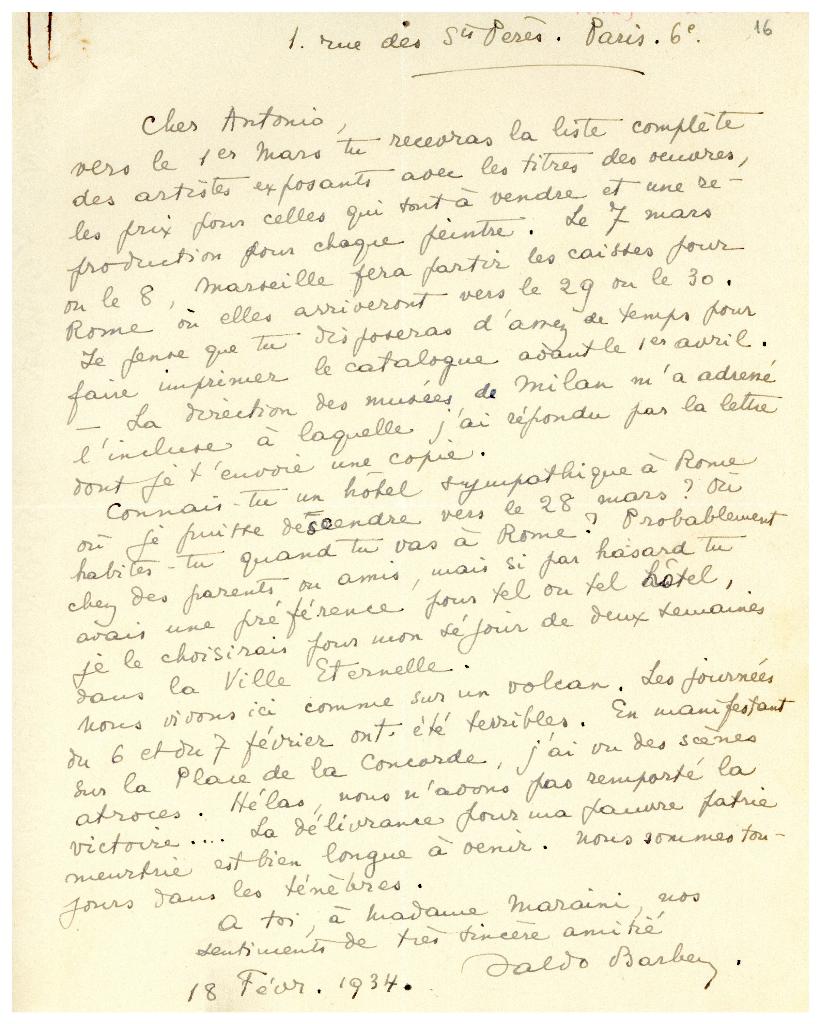 16
1. rue des Sts Perès. Paris. 6e.
Cher Antonio,
vers le 1er Mars tu recevras la liste complète
des artistes exposants avec les titres des oeuvres,
les prix pour celles qui sont à vendre et une re-
production pour chaque peintre. Le 7 mars
ou le 8, Marseille fera partir les caisses pour
Rome où elles arriveront vers le 29 ou le 30.
Je pense que tu disposeras d'assez de temps pour
faire imprimer le catalogue avant le 1er avril.
— La direction des musées de Milan m'a adressé
l'incluse à laquelle j'ai répondu par la lettre
dont je t'envoie une copie.
Connais-tu un hôtel sympathique à Rome
où je puisse descendre vers le 28 mars? Où
habites-tu quand tu vas à Rome? Probablement
chez des parents ou amis, mais si par hasard tu
avais une préférence pour tel ou tel hôtel,
je le choisirais pour mon séjour de deux semaines
dans la Ville Eternelle.
Nous vivons ici comme sur un volcan. Les journées
du 6 et du 7 février ont été terribles. En manifestant
sur la Place de la Concorde, j'ai vu des scènes
atroces. Hélas, nous n'avons pas remporté la
victoire.... La délivrance pour ma pauvre patrie
meurtrie est bien longue à venir. Nous sommes tou-
jours dans les ténèbres.
A toi, à Madame Maraini, nos
sentiments de très sincère amitié
Daldo Barbey.
18 Févr. 1934.